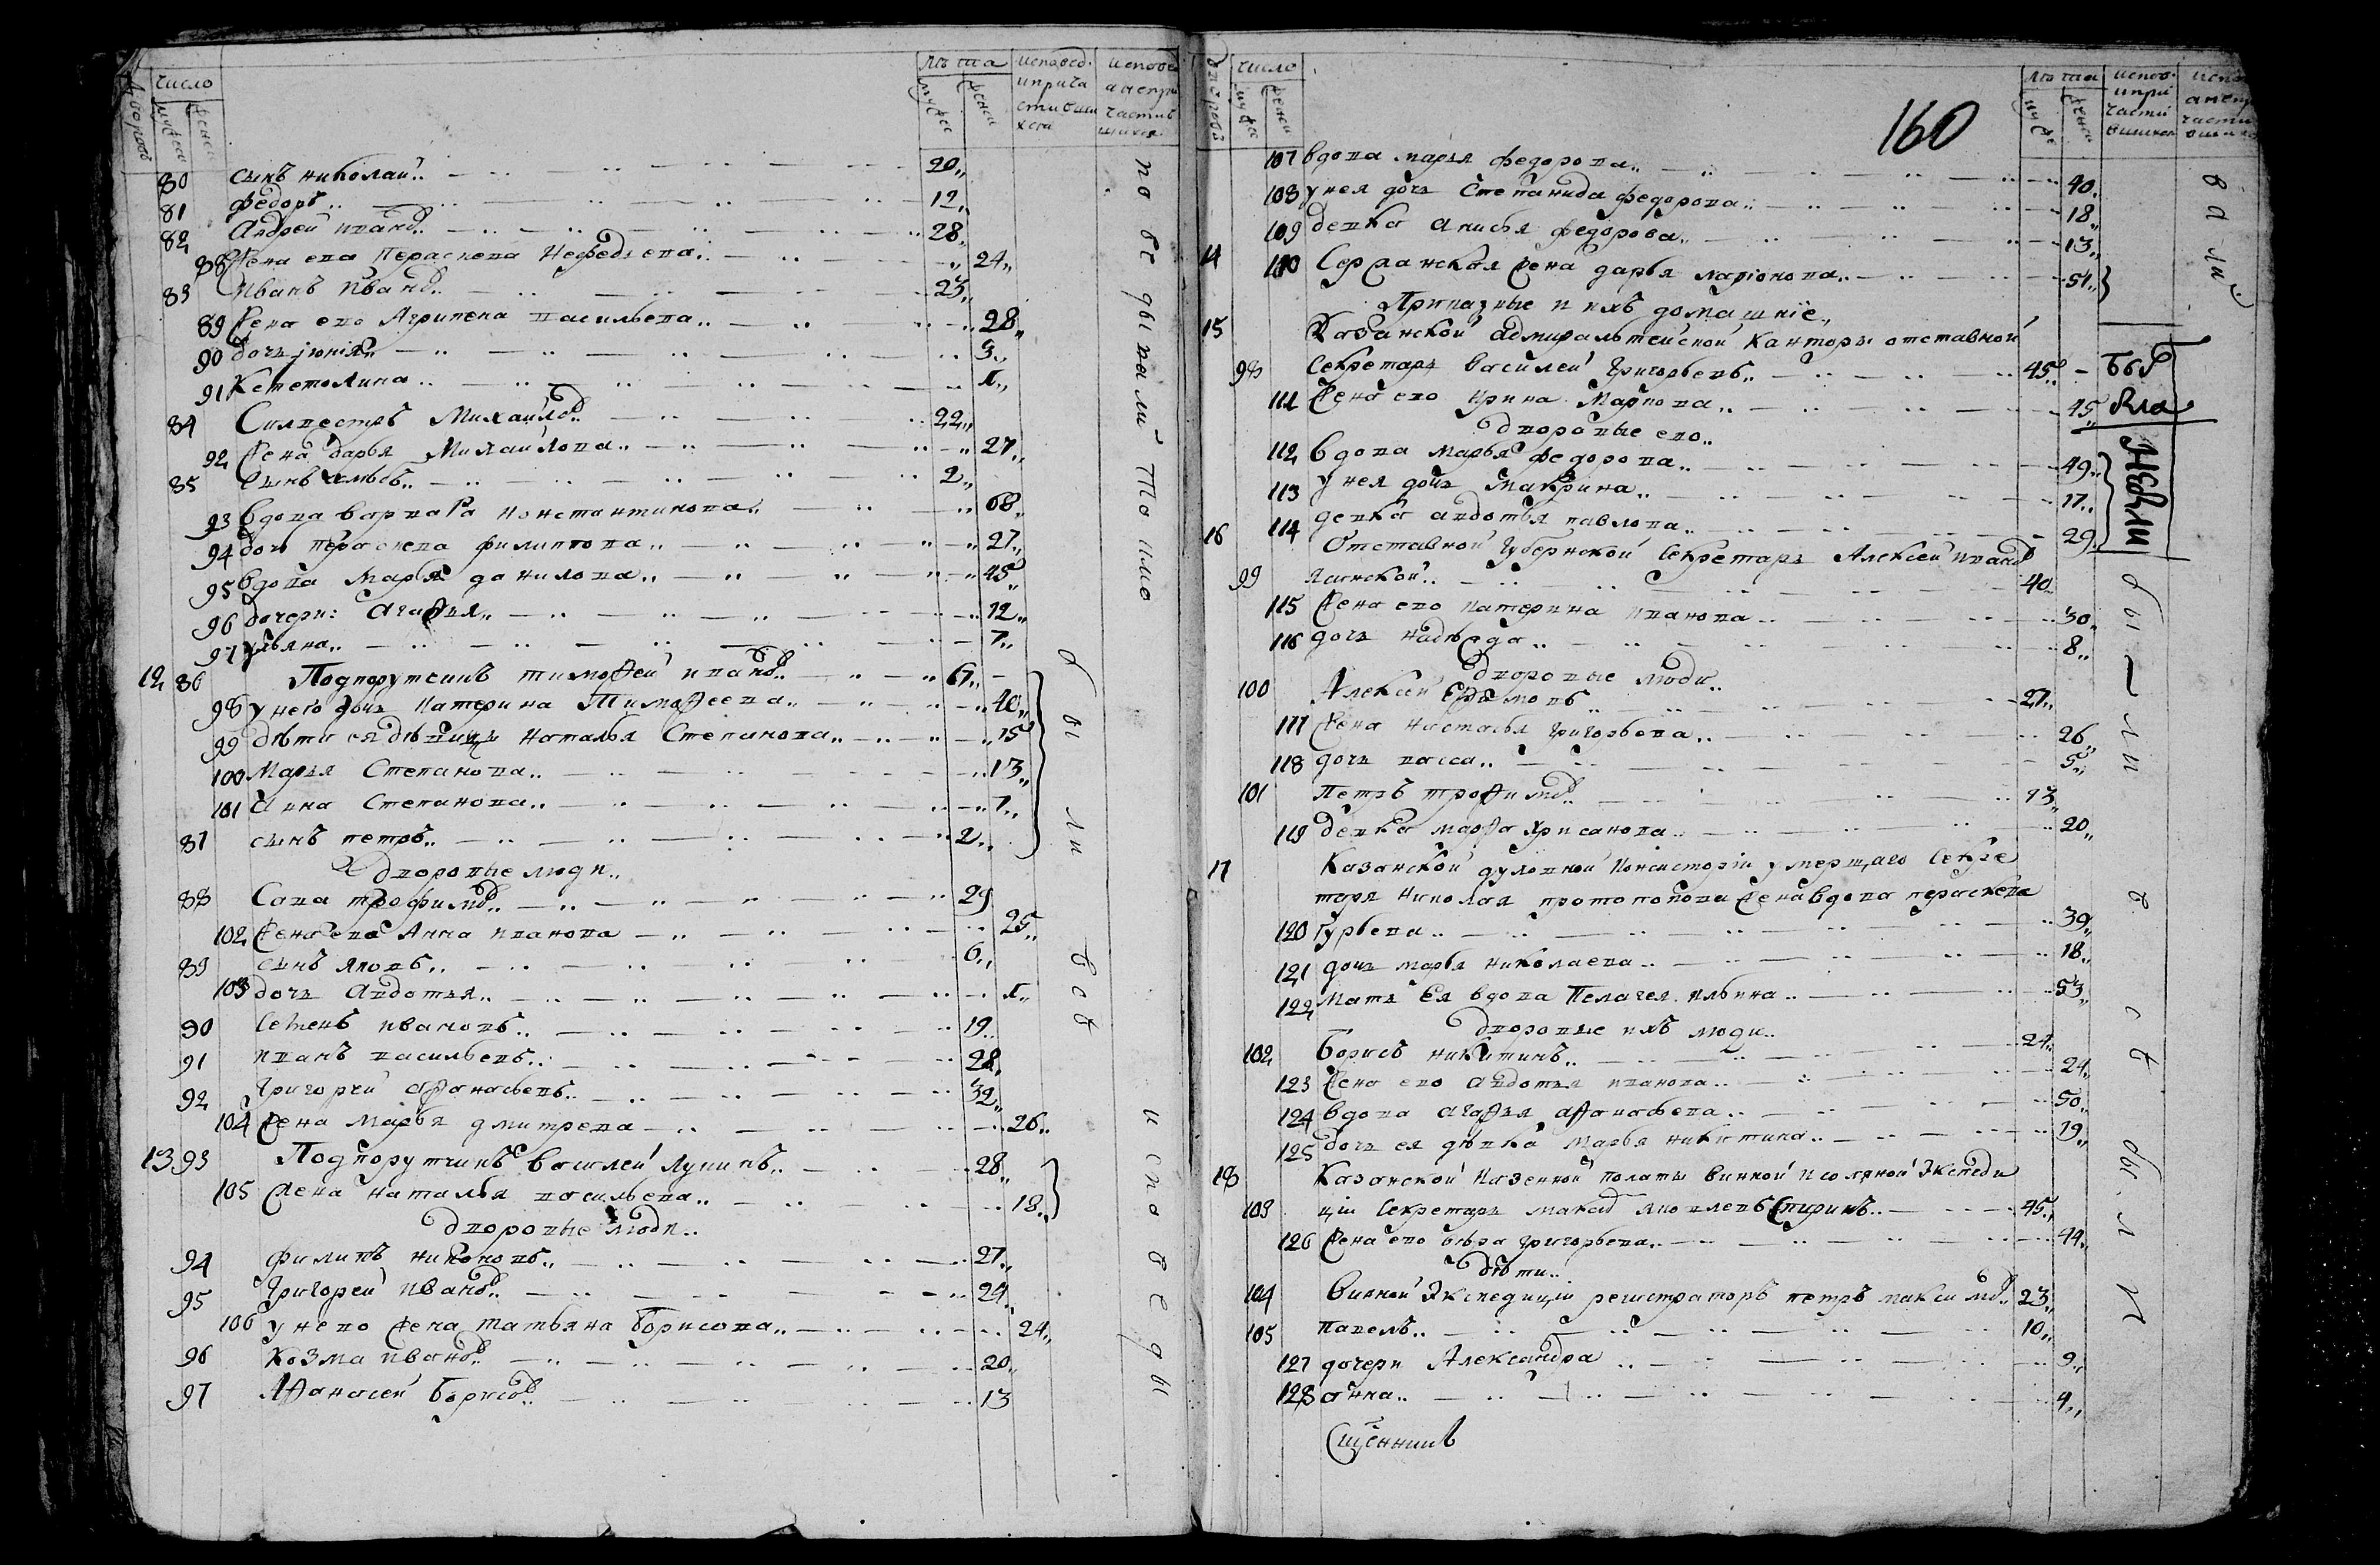 число
мужеска
женска
лѣта
мужес
женск
исповед.
и прича
стивши
хся
80 сынъ николай 20
81 федоръ 12
82 Андрей иванов 28
88 жена ево Пераскева Нефедьева 24
83 Иванъ Иванов 23
89 жена ево Агрипена васильева 28
90 дочь 3
91
84 Силвестръ Михайлов 22
92 жена дарья Михайлова 27
85 сынъ 2
93 вдова варвара константинова 68
94 дочь пераскева филиппова 27
95 вдова марья данилова 45
96 дочери: агафья 12
97 ульяна 7
12 86 Подпорутчикъ тимофей иванов 67
98 у него дочь катерина Тимофеева 40
99 дѣти ея дѣвицы наталья Степанова 15
100 Марья Степанова 13
101 анна Степанова 7
87 сынъ петръ 2
дворовые люди
88 Сава трофимов 29
102 жена ево Анна иванова 25
89 сынъ яковъ 6
103 дочь авдотья
90 Семенъ ивановъ 19
91 иванъ васильевъ 28
92 Григорей афонасьевъ 32
104 жена марья дмитрева 26
13 93 Подпорутчикъ василей Лунинъ 28
105 жена наталья васильева 18
дворовые люди
94 филипъ никоновъ 27
95 Григорей иванов 24
106 у нево жена татьяна борисова 24
96 козма иванов 20
97 Афонасей борисов 13
были
бо
исповеды
160
число
мужес
женск
лѣта
107 вдова марья федорова 40
108 у нея дочь Степанида федорова 18
109 девка анисья федорова 13
14 110 Сержанская жена дарья ларионова 51
Приказные и ихъ домашніе
15 Казанской адмиралтейской канторы отставной
98 секретарь василей григорьевъ 45
111 жена ево ирина Маркова 45
дворовые ево
112 вдова марья федорова 49
113 у нея дочь макрина 17
114 девка авдотья павлова 29
16 Отставной губернской секретарь Алексей иванов
99 40
115 жена ево катерина иванова 30
116 дочь надежда 8
дворовые люди
100 Алексей 27
117 жена настасья григорьева 26
118 дочь васса 5
101 петръ трофимов 13
119 девка марфа хрисанова 20
17 Казанской духовной консисторіи умершаго секре
таря николая протопопова жена вдова пераскева
120 гурьева 39
121 дочь марья николаева 18
122 мать ея вдова Пелагея ильина 53
дворовые ихъ люди
102 борисъ никитинъ 24
123 жена ево авдотья иванова 24
124 вдова агафья афонасьева 50
125 дочь ея дѣвка марья никитина 19
18 Казанской казенной полаты винной и соляной экспеди
103 ціи секретарь максим яковлевъ Спиринъ 45
126 жена ево вера григорьева 44
дѣти
104 винной экспедиціи регистраторъ петръ максимов 23
105 павелъ 10
127 дочери Александра 9
128 анна 4
были
Сщенникъ